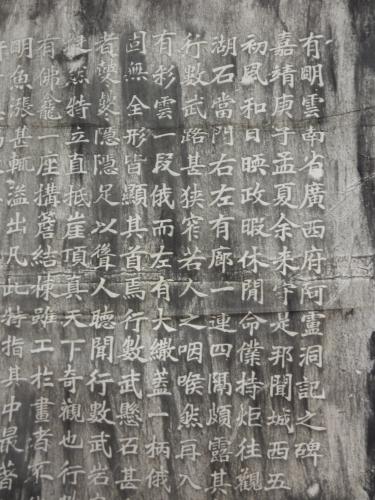 有明雲南省廣西府阿盧洞記之碑
嘉靖庚子孟夏余来守是邦聞城西五
初風和日暎政暇休閒命僕持炬往觀
湖石當門右左有廊一連四隅頗露其
行數武路甚狹窄若人之咽喉然再入
有彩雲一段俄而左有大繖蓋一柄俄
固無全形皆顯其首焉行數武懸石甚
者熒熒隱隱足以聳人聽聞行數武岩
特立直抵崖頂真天下奇觀也行數
有佛龕一座搆簷結棟雖工於畫者不
明魚漲甚輒溢出凡此特指其中最著